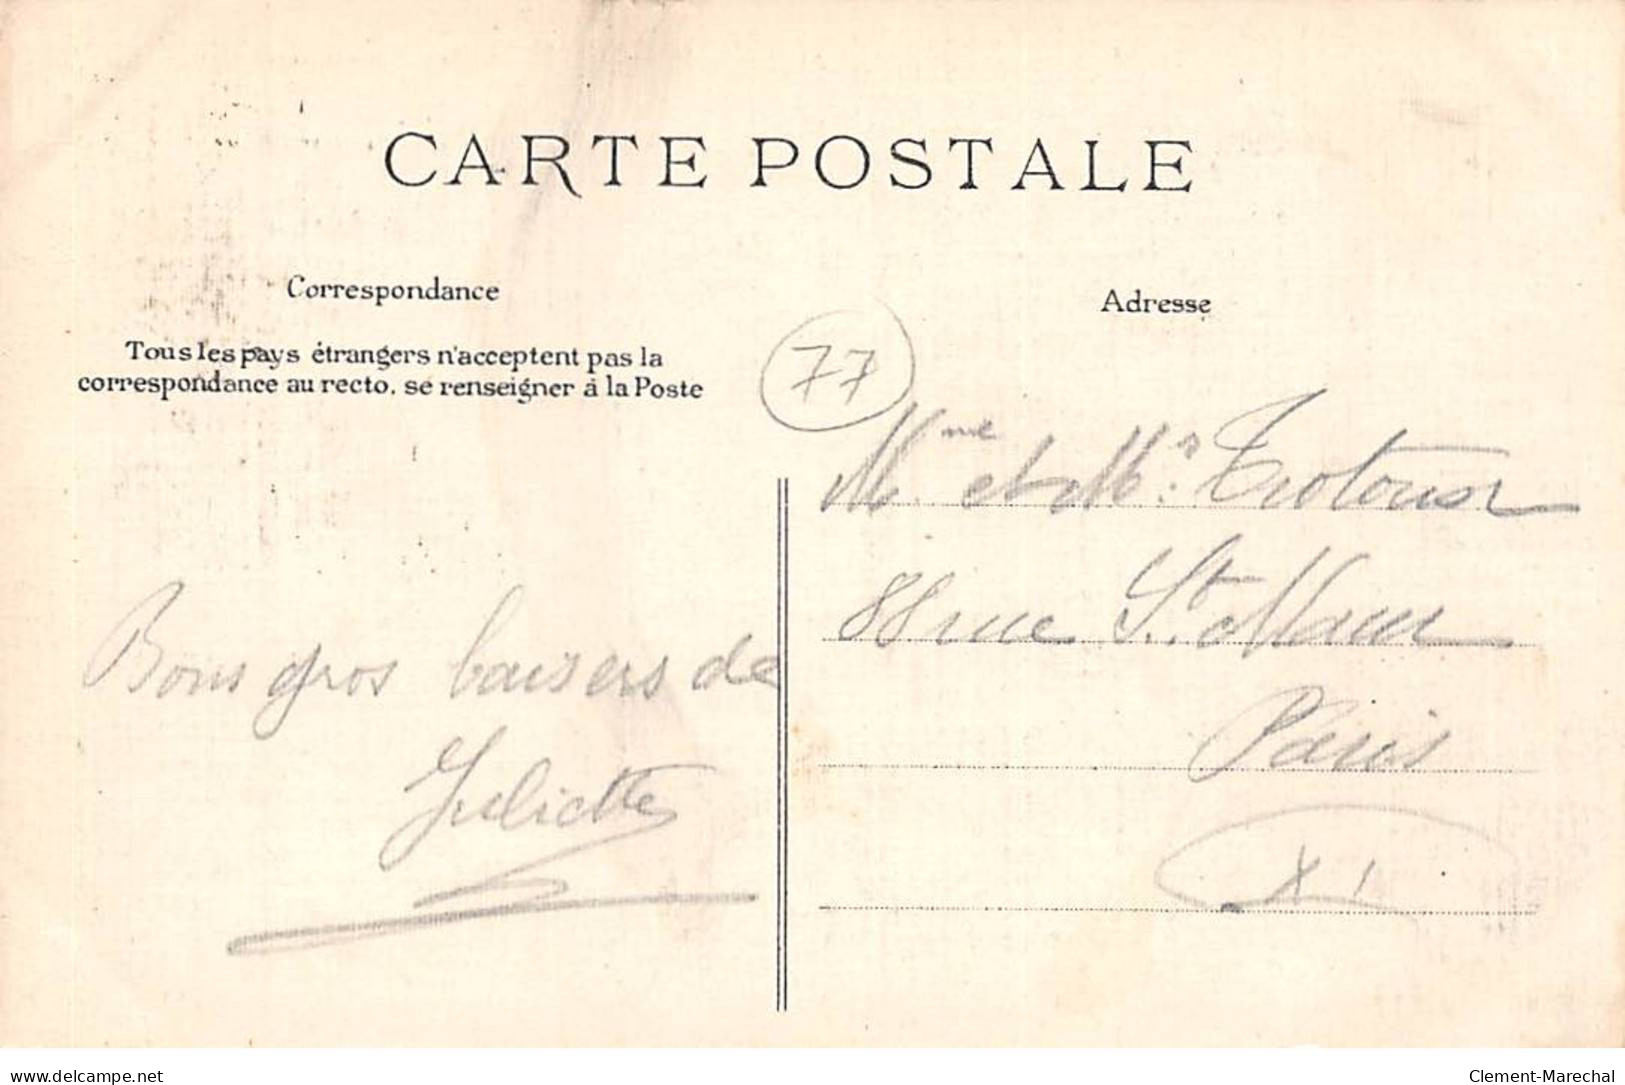 CARTE POSTALE
Correspondance
Tous les pays étrangers n'acceptent pas la
correspondance au recto, se renseigner à la Poste
Bons gros baisers de
Juliette
77
Adresse
Mme et Mr
88 rue St Maur
Paris
XI
www.delcampe.net
Clement-Marechal